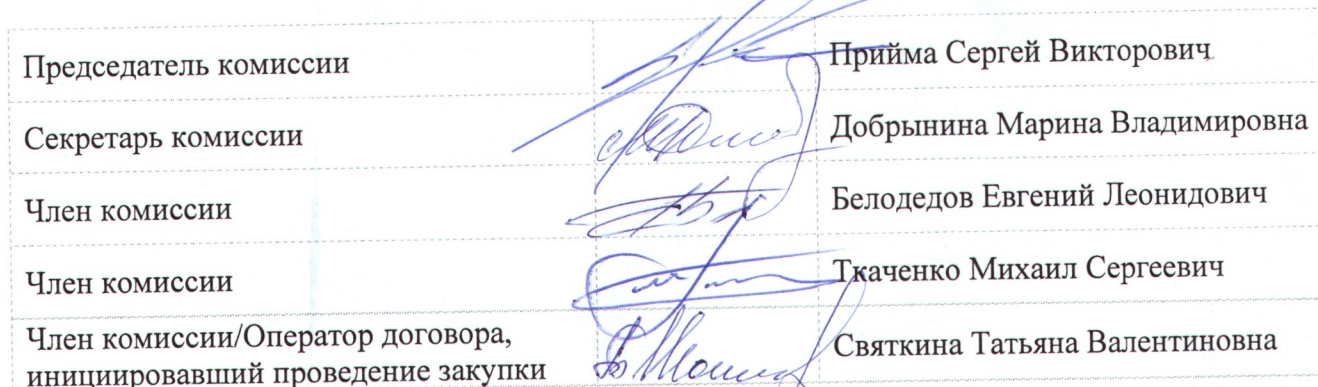 Председатель комиссии Прийма Сергей Викторович
Секретарь комиссии Добрынина Марина Владимировна
Член комиссии Белодедов Евгений Леонидович
Член комиссии Ткаченко Михаил Сергеевич
Член комиссии/Оператор договора,
инициировавший проведение закупки Святкина Татьяна Валентиновна